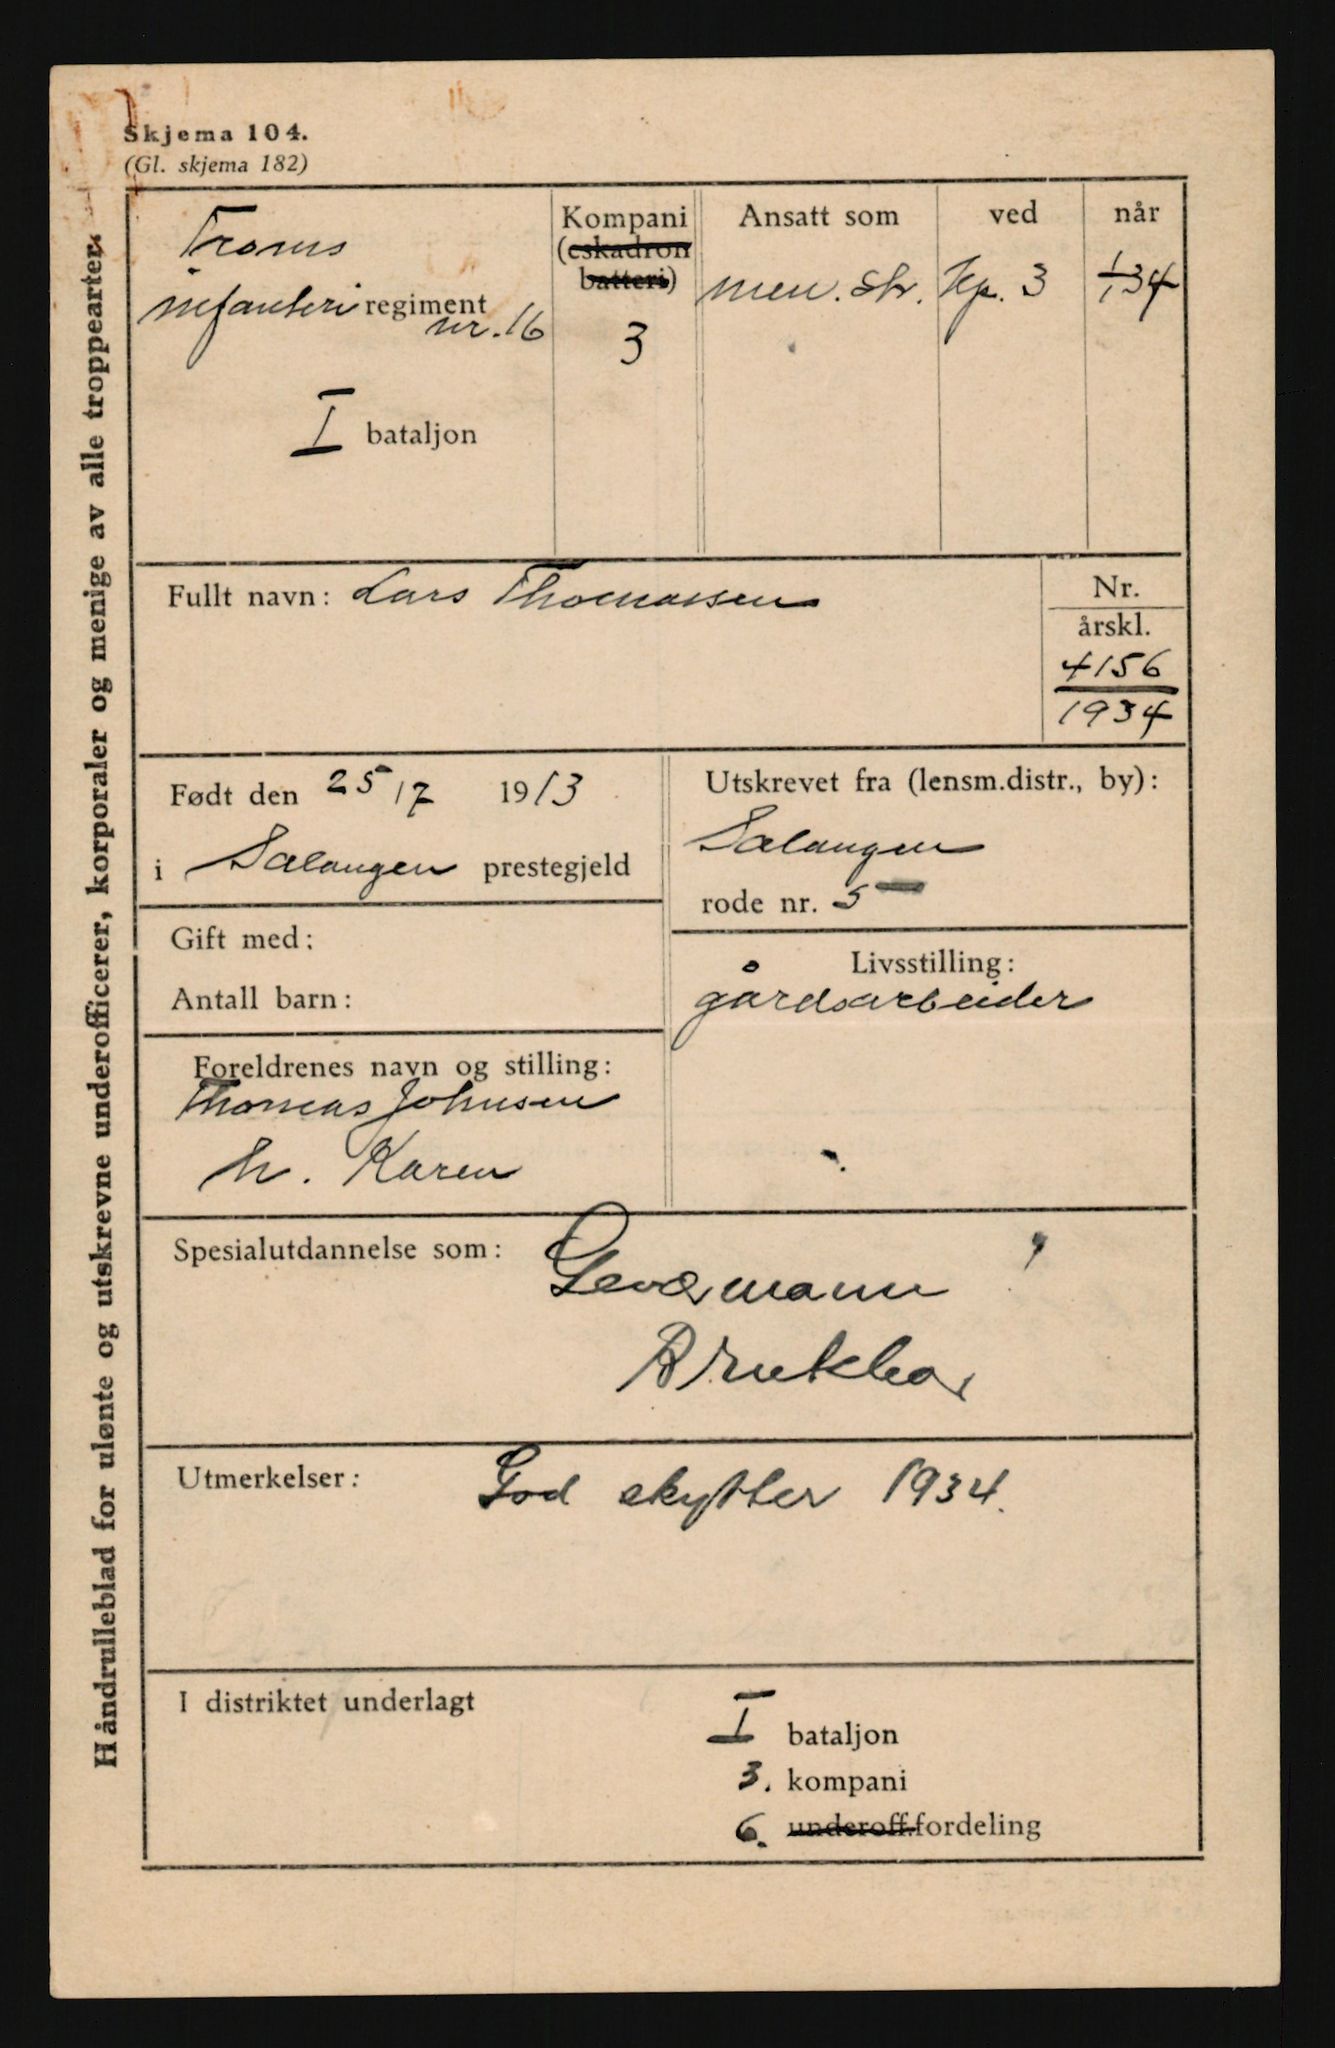 Skjema 104.
(Gl. skjema 182)
Håndrulleblad for ulønte og utskrevne underofficerer, korporaler og menige av alle troppearter.
Troms
infanteri regiment
nr. 16
I bataljon
Kompani
(eskadron
batteri)
3
Ansatt som
men. str.
ved
Kp. 3
når
1/1 34
Fullt navn: Lars Thomassen
Nr.
årskl.
4156
1934
Født den 25/7 1913
i Salangen prestegjeld
Utskrevet fra (lensm.distr., by):
Salangen
rode nr. 5
Gift med:
Antall barn:
Livsstilling:
gårdsarbeider
Foreldrenes navn og stilling:
Thomas Johnsen
h. Karen
Spesialutdannelse som: Geværmann
Brukbar
Utmerkelser: God skytter 1934.
I distriktet underlagt
I bataljon
3. kompani
6. underoff.fordeling